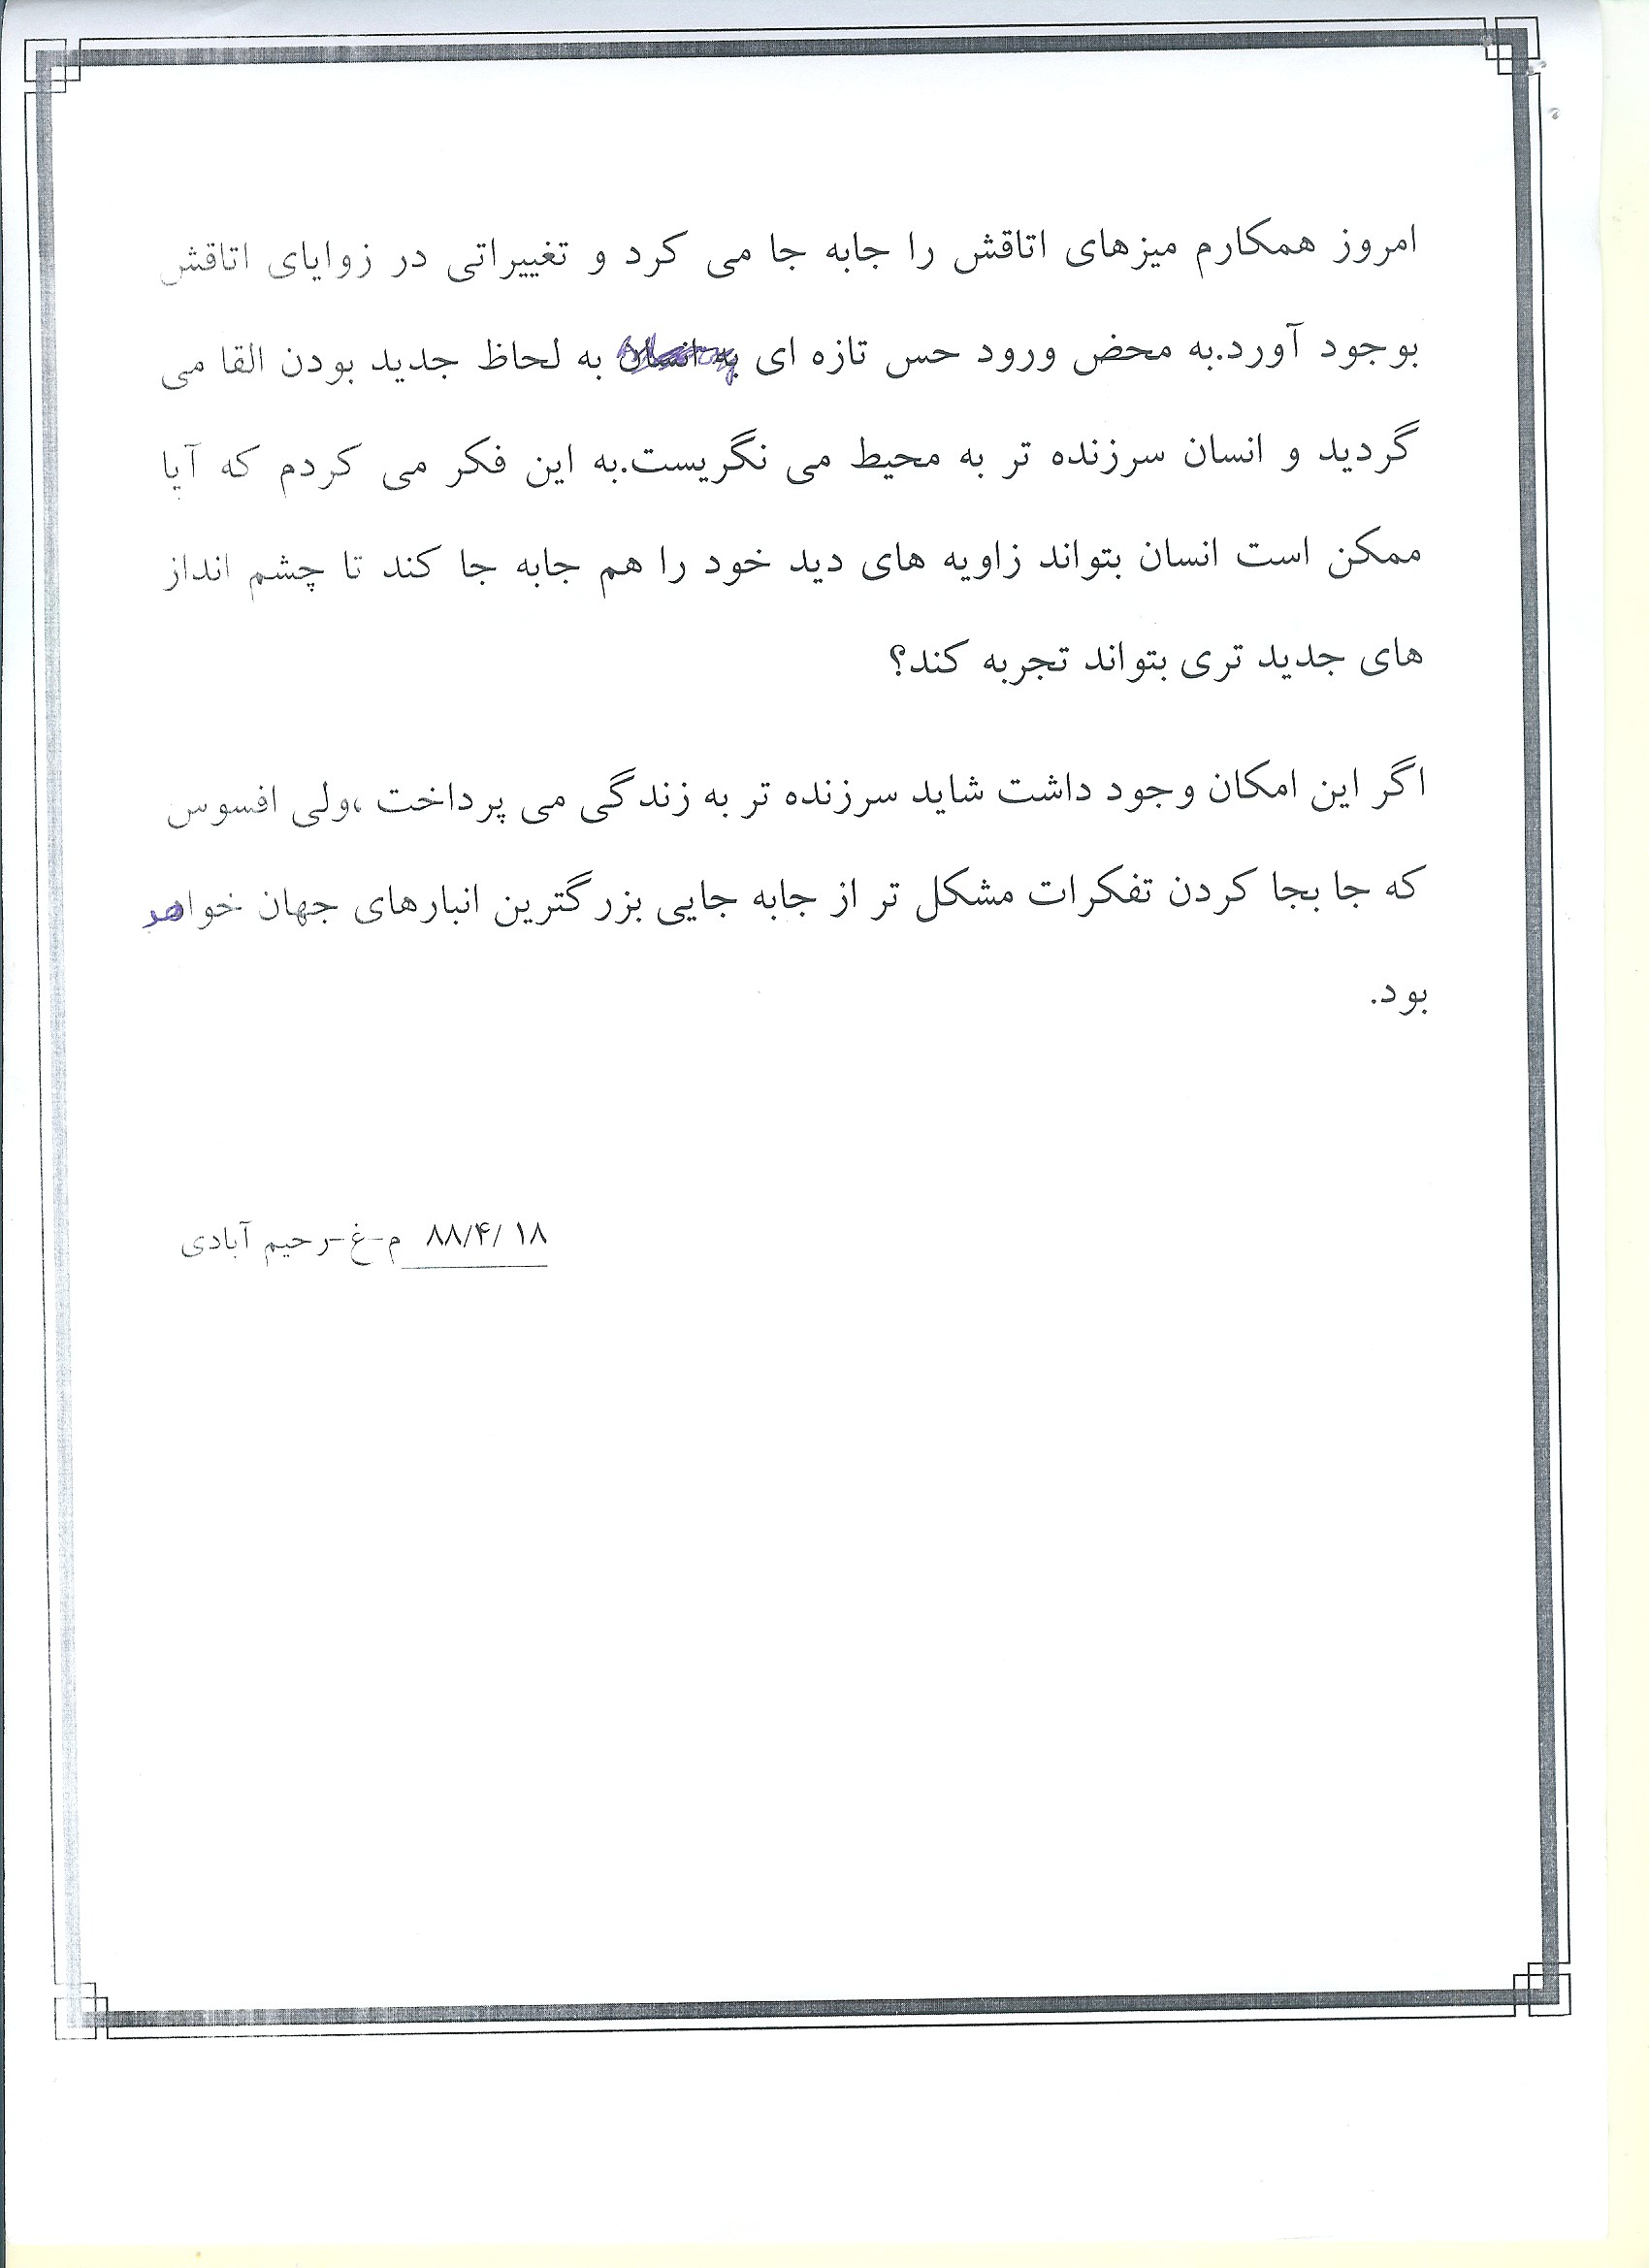 امروز همکارم میزهای اتاقش را جابه جا می کرد و تغییراتی در زوایای اتاقش
بوجود آورد.به محض ورود حس تازه ای به انسان به لحاظ جدید بودن القا می
گردید و انسان سرزنده تر به محیط می نگریست.به این فکر می کردم که آیا
ممکن است انسان بتواند زاویه های دید خود را هم جابه جا کند تا چشم انداز
های جدید تری بتواند تجربه کند؟
اگر این امکان وجود داشت شاید سرزنده تر به زندگی می پرداخت ،ولی افسوس
که جا بجا کردن تفکرات مشکل تر از جابه جایی بزرگترین انبارهای جهان خواهد
بود.
۸۸/۴/۱۸ م-غ-رحیم آبادی